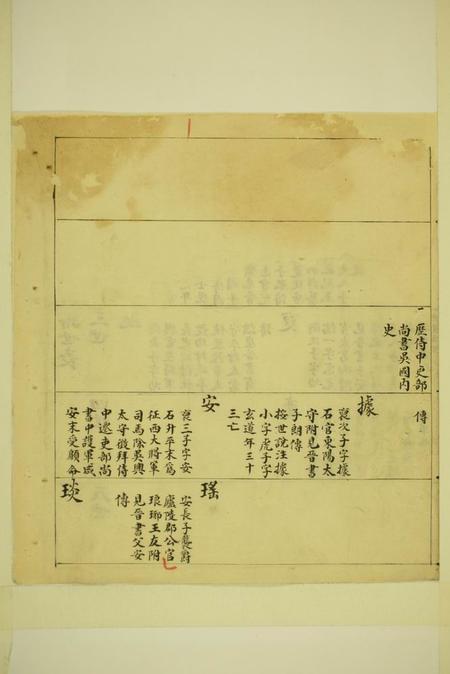 歷侍中吏部
尚書吳國內
史
傳
據
裒次子字據
石官東陽太
守附見晉書
子朗傳
按世說注據
小字虎子字
玄道年三十
三亡
安
裒三子字安
石升平末爲
征西大將軍
司馬除吳興
太守徵拜侍
中遷吏部尚
書中護軍咸
安末受顧命
瑤
安長子襲爵
廬陵郡公官
琅琊王友附
見晉書父安
傳
琰